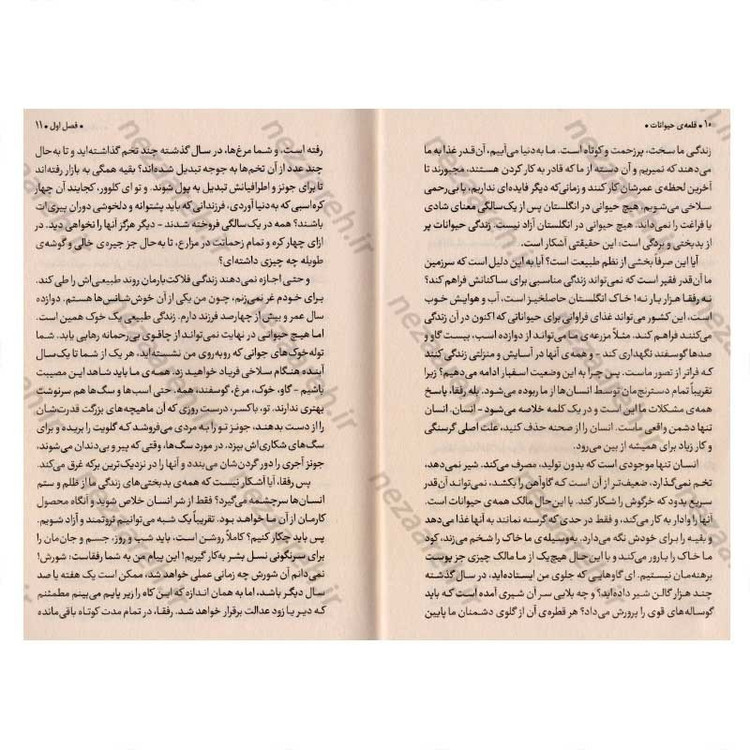 ۱۰ • قلعه‌ی حیوانات •
زندگی ما سخت، پرزحمت و کوتاه است. ما به‌دنیا می‌آییم، آن‌قدر غذا به ما
می‌دهند که نمیریم و آن دسته از ما که قادر به کار کردن هستند، مجبورند تا
آخرین لحظه‌ی عمرشان کار کنند و زمانی‌که دیگر فایده‌ای نداریم، با بی‌رحمی
سلاخی می‌شویم. هیچ حیوانی در انگلستان پس از یک‌سالگی معنای شادی
یا فراغت را نمی‌داند. هیچ حیوانی در انگلستان آزاد نیست. زندگی حیوانات پر
از بدبختی و بردگی است؛ این حقیقتی آشکار است.
آیا این صرفاً بخشی از نظم طبیعت است؟ آیا به این دلیل است که سرزمین
ما آن‌قدر فقیر است که نمی‌تواند زندگی مناسبی برای ساکنانش فراهم کند؟
نه رفقا هزار بار نه! خاک انگلستان حاصلخیز است، آب و هوایش خوب
است، این کشور می‌تواند غذای فراوانی برای حیواناتی که اکنون در آن زندگی
می‌کنند فراهم کند. مثلاً مزرعه‌ی ما می‌تواند از دوازده اسب، بیست گاو و
صدها گوسفند نگهداری کند - و همه‌ی آنها در آسایش و منزلتی زندگی کنند
که فراتر از تصور ماست. پس چرا به این وضعیت اسفبار ادامه می‌دهیم؟ زیرا
تقریباً تمام دسترنج‌مان توسط انسان‌ها از ما ربوده می‌شود. بله رفقا، پاسخ
همه‌ی مشکلات ما این است و در یک کلمه خلاصه می‌شود - انسان. انسان
تنها دشمن واقعی ماست. انسان را از صحنه حذف کنید، علت اصلی گرسنگی
و کار زیاد برای همیشه از بین می‌رود.
انسان تنها موجودی است که بدون تولید، مصرف می‌کند. شیر نمی‌دهد،
تخم نمی‌گذارد، ضعیف‌تر از آن است که گاوآهن را بکشد، نمی‌تواند آن‌قدر
سریع بدود که خرگوش را شکار کند. با این‌حال مالک همه‌ی حیوانات است.
آنها را وادار به کار می‌کند، و فقط در حدی که گرسنه نمانند به آنها غذا می‌دهد
و بقیه را برای خودش نگه می‌دارد. به‌وسیله‌ی ما خاک را شخم می‌زند، کود
ما خاک را بارور می‌کند و با این حال هیچ‌یک از ما مالک چیزی جز پوست
برهنه‌مان نیستیم. ای گاوهایی که جلوی من ایستاده‌اید، در سال گذشته
چند هزار گالن شیر داده‌اید؟ و چه بلایی سر آن شیری آمده است که باید
گوساله‌های قوی را پرورش می‌داد؟ هر قطره‌ی آن از گلوی دشمنان ما پایین
• فصل اول • ۱۱
رفته است. و شما مرغ‌ها، در سال گذشته چند تخم گذاشته‌اید و تا به‌حال
چند عدد از آن تخم‌ها به جوجه تبدیل شده‌اند؟ بقیه همگی به بازار رفته‌اند
تا برای جونز و اطرافیانش تبدیل به پول شوند. و تو ای کلوور، کجایند آن چهار
کره‌اسبی که به‌دنیا آوردی، فرزندانی که باید پشتوانه و دلخوشی دوران پیری‌ات
باشند؟ همه در یک‌سالگی فروخته شدند - دیگر هرگز آنها را نخواهی دید. در
ازای چهار کره و تمام زحماتت در مزارع، تا به‌حال جز جیره‌ی خالی و گوشه‌ی
طویله چه چیزی داشته‌ای؟
و حتی اجازه نمی‌دهند زندگی فلاکت‌بارمان روند طبیعی‌اش را طی کند.
برای خودم غر نمی‌زنم، چون من یکی از آن خوش‌شانس‌ها هستم. دوازده
سال عمر و بیش از چهارصد فرزند دارم. زندگی طبیعی یک خوک همین است.
اما هیچ حیوانی در نهایت نمی‌تواند از چاقوی بی‌رحمانه رهایی یابد. شما
توله‌خوک‌های جوانی که روبه‌روی من نشسته‌اید، هر یک از شما تا یک‌سال
آینده هنگام سلاخی فریاد خواهید زد. همه‌ی ما باید شاهد این مصیبت
باشیم - گاو، خوک، مرغ، گوسفند، همه. حتی اسب‌ها و سگ‌ها هم سرنوشت
بهتری ندارند. تو، باکسر، درست روزی که آن ماهیچه‌های بزرگت قدرت‌شان
را از دست بدهند، جونز تو را به مردی می‌فروشد که گلویت را بریده و برای
سگ‌های شکاری‌اش بپزد. در مورد سگ‌ها، وقتی که پیر و بی‌دندان می‌شوند،
جونز آجری را دور گردن‌شان می‌بندد و آنها را در نزدیک‌ترین برکه غرق می‌کند.
پس رفقا، آیا آشکار نیست که همه‌ی بدبختی‌های زندگی ما از ظلم و ستم
انسان‌ها سرچشمه می‌گیرد؟ فقط از شر انسان خلاص شوید و آنگاه محصول
کارمان از آن ما خواهد بود. تقریباً یک شبه می‌توانیم ثروتمند و آزاد شویم.
پس باید چکار کنیم؟ کاملاً روشن است، باید شب و روز، جسم و جان‌مان را
برای سرنگونی نسل بشر به‌کار گیریم! این پیام من به شما رفقاست، شورش!
نمی‌دانم آن شورش چه زمانی عملی خواهد شد، ممکن است یک هفته یا صد
سال دیگر باشد، اما به همان اندازه که این کاه را زیر پایم می‌بینم مطمئنم
که دیر یا زود عدالت برقرار خواهد شد. رفقا، در تمام مدت کوتاه باقی‌مانده
nezaareh.ir